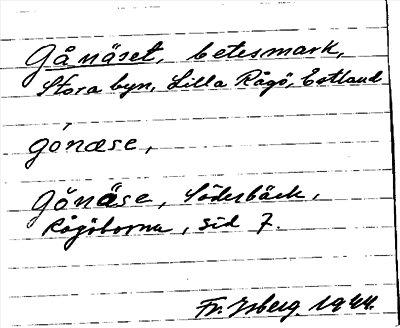 Gånäset, betesmark,
Stora byn, Lilla Rågö, Estland
gónæse,
Gǻnäse, Söderbäck,
Rågöborna, sid 7.
Fr. Isberg. 1944.